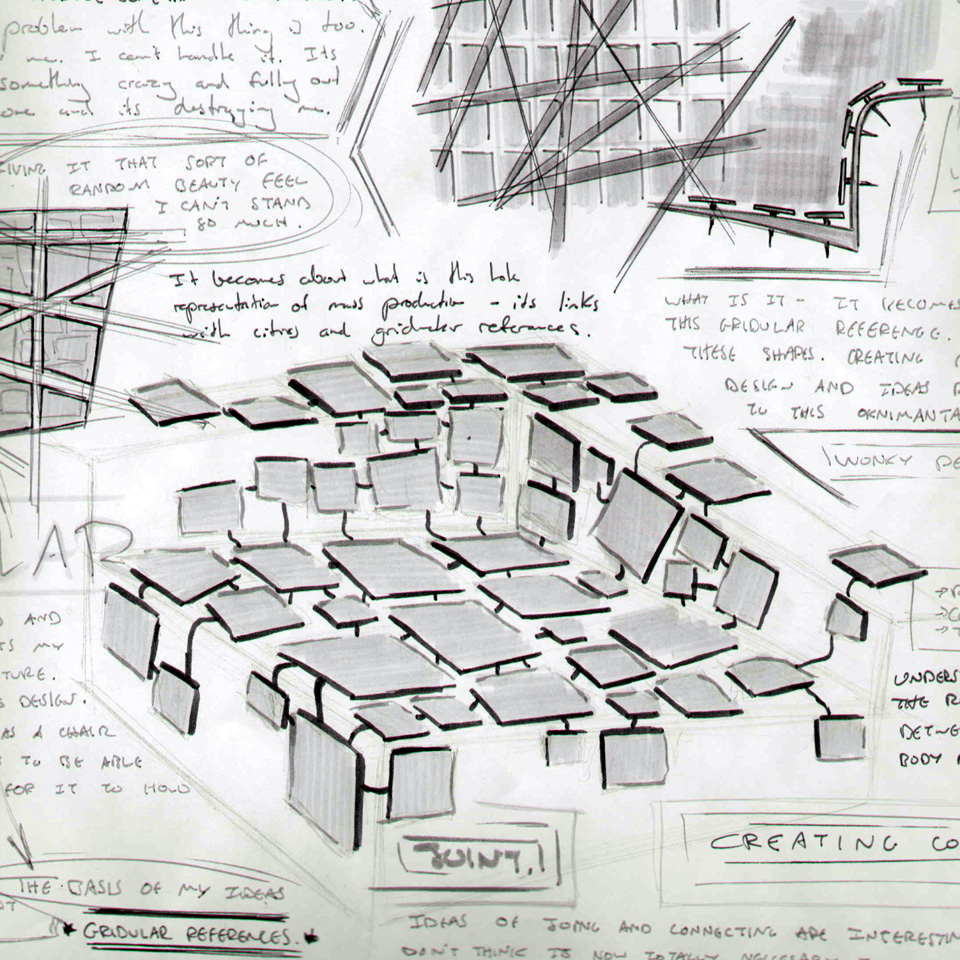 problem with this thing is too.
me. I can't handle it. Its
something crazy and fully out
one and its destroying me.
GIVING IT THAT SORT OF
RANDOM BEAUTY FEEL
I CAN'T STAND
SO MUCH.
It becomes about what is this hole
representation of mass production - its links
with cities and gridular references.
WHAT IS IT - IT BECOMES
THIS GRIDULAR REFERENCE.
THESE SHAPES. CREATING
DESIGN AND IDEAS
TO THIS
WONKY
LAR
AND
ITS MY
TURE.
DESIGN.
AS A CHAIR
TO BE ABLE
FOR IT TO HOLD
UNDERS
THE R
BETWE
BODY
JOINT.!
CREATING CO
THE BASIS OF MY IDEAS
GRIDULAR REFERENCES.
IDEAS OF JOING AND CONNECTING ARE INTERESTIN
DON'T THINK IS NOW TOTALLY NECESSARY